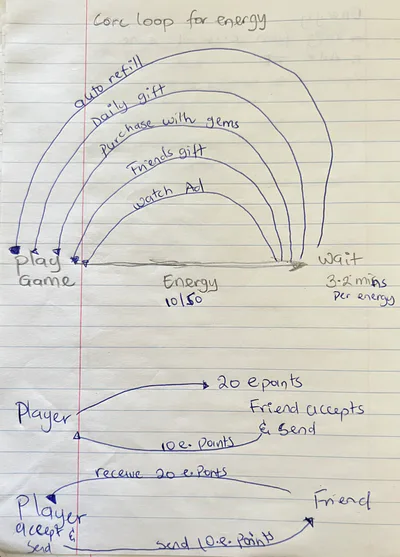 Core loop for energy
auto refill
Daily gift
Purchase with gems
Friends gift
watch Ad
Play
Game
Energy
10/50
Wait
3-2 mins
Per energy
20 e points
Player
Friend accepts
& Send
10 e. Points
receive 20 e. Points
Player
accept &
Send
Friend
Send 10.e. Points